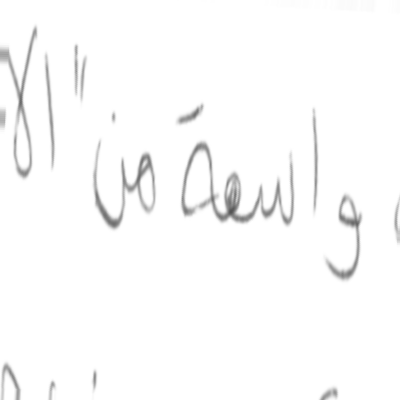 واسعة من "الا